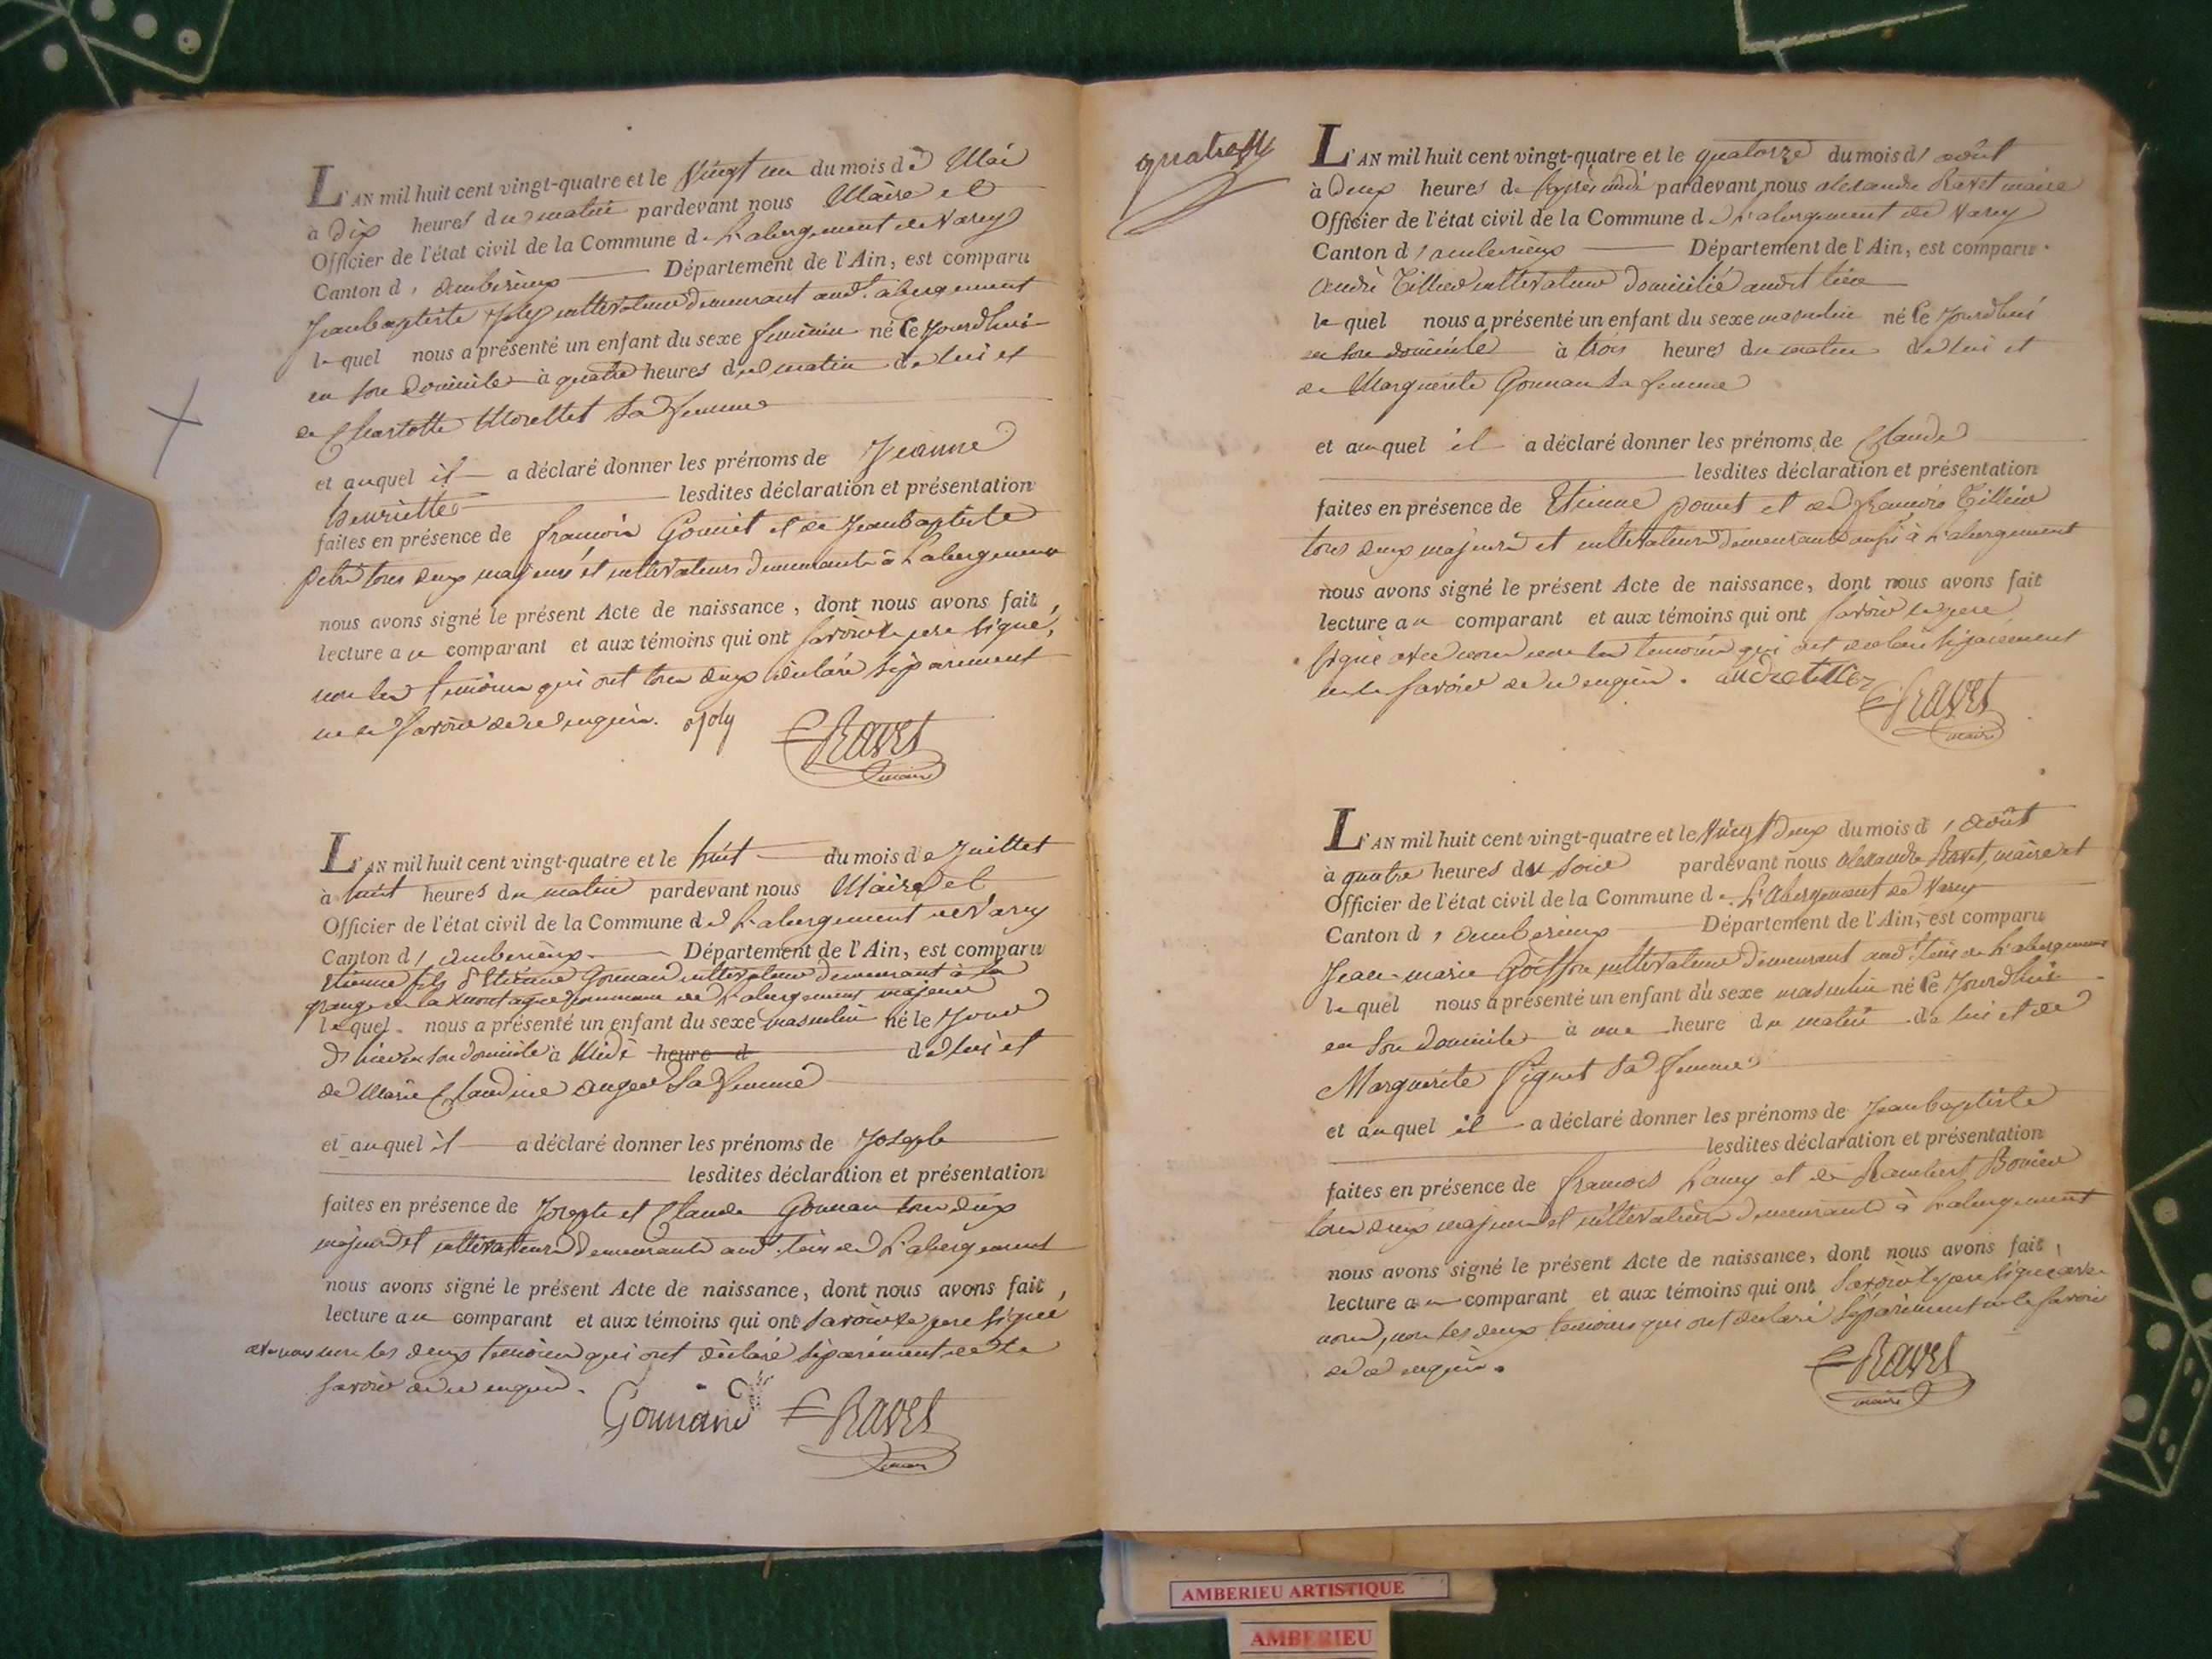 L'AN mil huit cent vingt-quatre et le Vingt un du mois de Mai
à dix heures du matin pardevant nous Maire et
Officier de l'état civil de la Commune de L'abergement de Varey
Canton d'ambérieux Département de l'Ain, est comparu
Jeanbaptiste Joly cultivateur demeurant audt. abergement
lequel nous a présenté un enfant du sexe feminin né Ce Jourdhui
en son domicile à quatre heures du matin de lui et
de Charlotte Morellet sa femme
et auquel il a déclaré donner les prénoms de Jeanne
henriette lesdites déclaration et présentation
faites en présence de francois Gouniet et de Jeanbaptiste
tous deux majeurs et cultivateurs demeurants à L'abergement
nous avons signé le présent Acte de naissance, dont nous avons fait
lecture au comparant et aux témoins qui ont savoir le pere signé,
non les temoins qui ont tous deux déclaré séparement
ne le savoir de ce enquis. Joly Ravet
maire
L'AN mil huit cent vingt-quatre et le huit du mois de Juillet
à huit heures du matin pardevant nous Maire et
Officier de l'état civil de la Commune de L'abergement de Varey
Canton d'amberieux Département de l'Ain, est comparu
Etienne fils d'Etienne Gounan cultivateur demeurant à la
grange de la montagne commune de L'abergement majeur
lequel nous a présenté un enfant du sexe masculin né le Jour
d'hier en son domicile à Midi heure d de lui et
de Marie Claudine auger sa femme
et auquel il a déclaré donner les prénoms de Joseph
lesdites déclaration et présentation
faites en présence de Joseph et Claude Gounan tous deux
majeurs et cultivateurs demeurants audt. lieu de L'abergement
nous avons signé le présent Acte de naissance, dont nous avons fait,
lecture au comparant et aux témoins qui ont savoir le pere signé
avec nous non les deux temoins qui ont déclaré séparément ne le
savoir de ce enquis.
Gounand Ravet
maire
quatre
L'AN mil huit cent vingt-quatre et le quatorze du mois d'août
à Deux heures de l'après midi pardevant nous alexandre Ravet maire
Officier de l'état civil de la Commune de L'abergement de Varey
Canton d'amberieux Département de l'Ain, est comparu
andré Tillier cultivateur domicilié audit lieu
lequel nous a présenté un enfant du sexe masculin né Ce Jourdhui
en son domicile à trois heures du matin de lui et
de Marguerite Gounan sa femme
et auquel il a déclaré donner les prénoms de Claude
lesdites déclaration et présentation
faites en présence de Etienne pomet et de francois Tillier
tous deux majeurs et cultivateurs demeurants aussi à L'abergement
nous avons signé le présent Acte de naissance, dont nous avons fait
lecture au comparant et aux témoins qui ont savoir le pere
signé avec nous non les temoins qui ont déclaré séparement
ne le savoir de ce enquis. andre tillier Ravet
maire
L'AN mil huit cent vingt-quatre et le Vingt deux du mois d'Août
à quatre heures du soir pardevant nous alexandre Ravet, maire et
Officier de l'état civil de la Commune de L'Abergement de Varey
Canton d'amberieux Département de l'Ain, est comparu
Jean-marie Goiffon cultivateur demeurant audt. lieu de L'abergement
lequel nous a présenté un enfant du sexe masculin né Ce Jourdhui
en son domicile à une heure du matin de lui et de
Marguerite Piquet sa femme
et auquel il a déclaré donner les prénoms de Jeanbaptiste
lesdites déclaration et présentation
faites en présence de francois Lamy et de Rambert Bovier
tous deux majeurs et cultivateurs demeurants à L'abergement
nous avons signé le présent Acte de naissance, dont nous avons fait,
lecture au comparant et aux témoins qui ont savoir le pere signé avec
nous, non les deux temoins qui ont déclaré séparément ne le savoir
de ce enquis.
Ravet
maire
AMBERIEU ARTISTIQUE
AMBERIEU